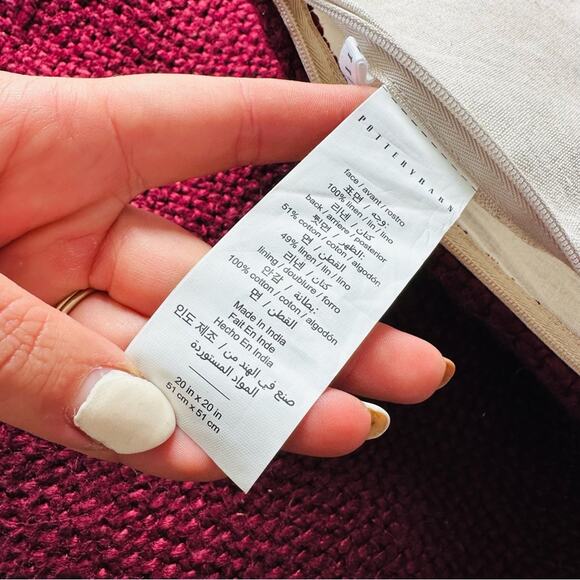 POTTERYBARN
face / avant / rostro
표면 / وجه:
100% linen / lin / lino
리넨 / كتان
back / arriere / posterior
뒷면 / الظهر:
51% cotton / coton / algodón
면 / القطن
49% linen / lin / lino
리넨 / كتان
lining / doublure / forro
안감 / بطانة:
100% cotton / coton / algodón
면 / القطن
Made In India
Fait En Inde
Hecho En India
인도 제조 / صنع في الهند من
المواد المستوردة
20 in x 20 in
51 cm x 51 cm